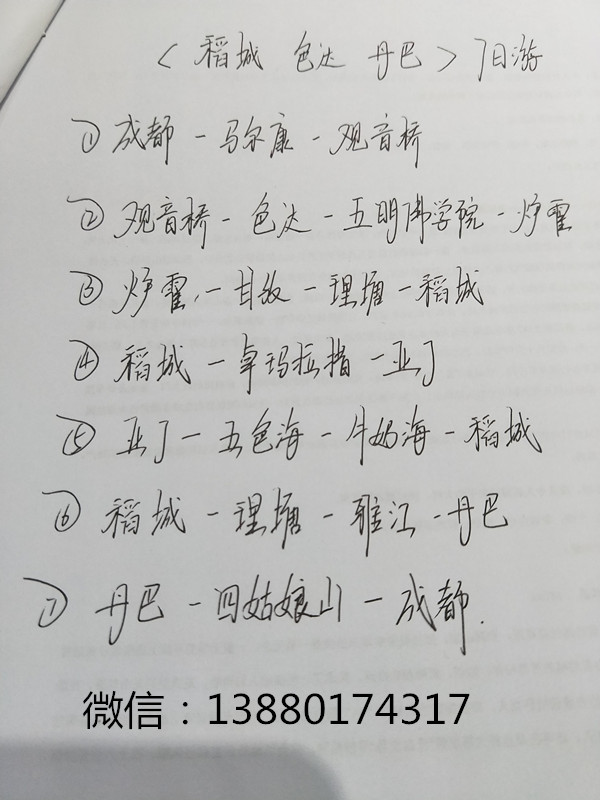 <稻城 色达 丹巴>7日游
① 成都-马尔康-观音桥
② 观音桥-色达-五明佛学院-炉霍
③ 炉霍-甘孜-理塘-稻城
④ 稻城-卓玛拉措-亚丁
⑤ 亚丁-五色海-牛奶海-稻城
⑥ 稻城-理塘-雅江-丹巴
⑦ 丹巴-四姑娘山-成都.
微信：13880174317